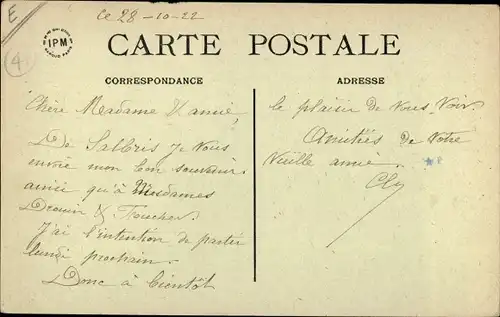 E
Ce 28-10-22
4
IPM
CARTE POSTALE
CORRESPONDANCE
ADRESSE
Chère Madame & amie,
De Salbris je vous
envoie mon bon souvenir
ainsi qu'à Mesdames
& Foucher.
J'ai l'intention de partir
lundi prochain.
Donc à bientôt
le plaisir de vous voir.
Amitiés de votre
Vieille amie.